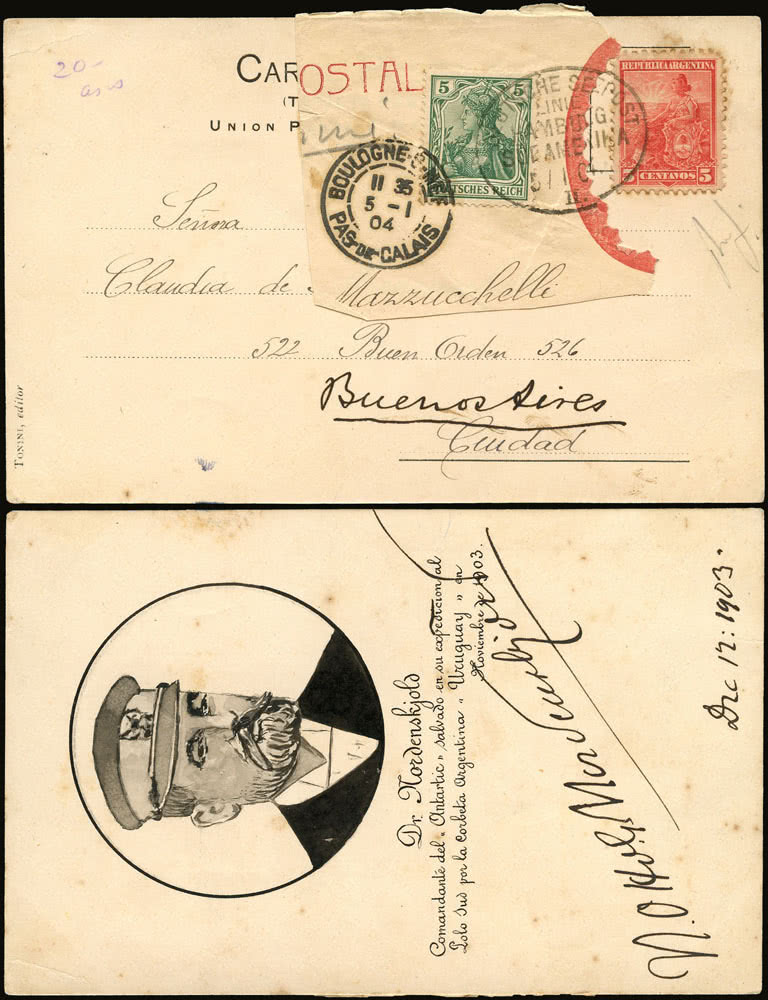 20-
CAR
OSTAL
(T
UNION P
5 5
DEUTSCHES REICH
REPUBLICA ARGENTINA
5 CENTAVOS 5
BOULOGNE-S-MER
11 35
5 -1
04
PAS-DE-CALAIS
LINIE
HAMBURG
SÜDAMERIKA
Señora
Claudia de Mazzucchelli
522 Buen Orden 526
Buenos Aires
Ciudad
TONINI, editor
Dr. Nordenskjold
Comandante del "Antartic" salvado en su expedicion al
Polo Sud por la corbeta Argentina "Uruguay" en
Noviembre de 1903.
N. Otto G. Nordenskjöld
Dec 12: 1903.